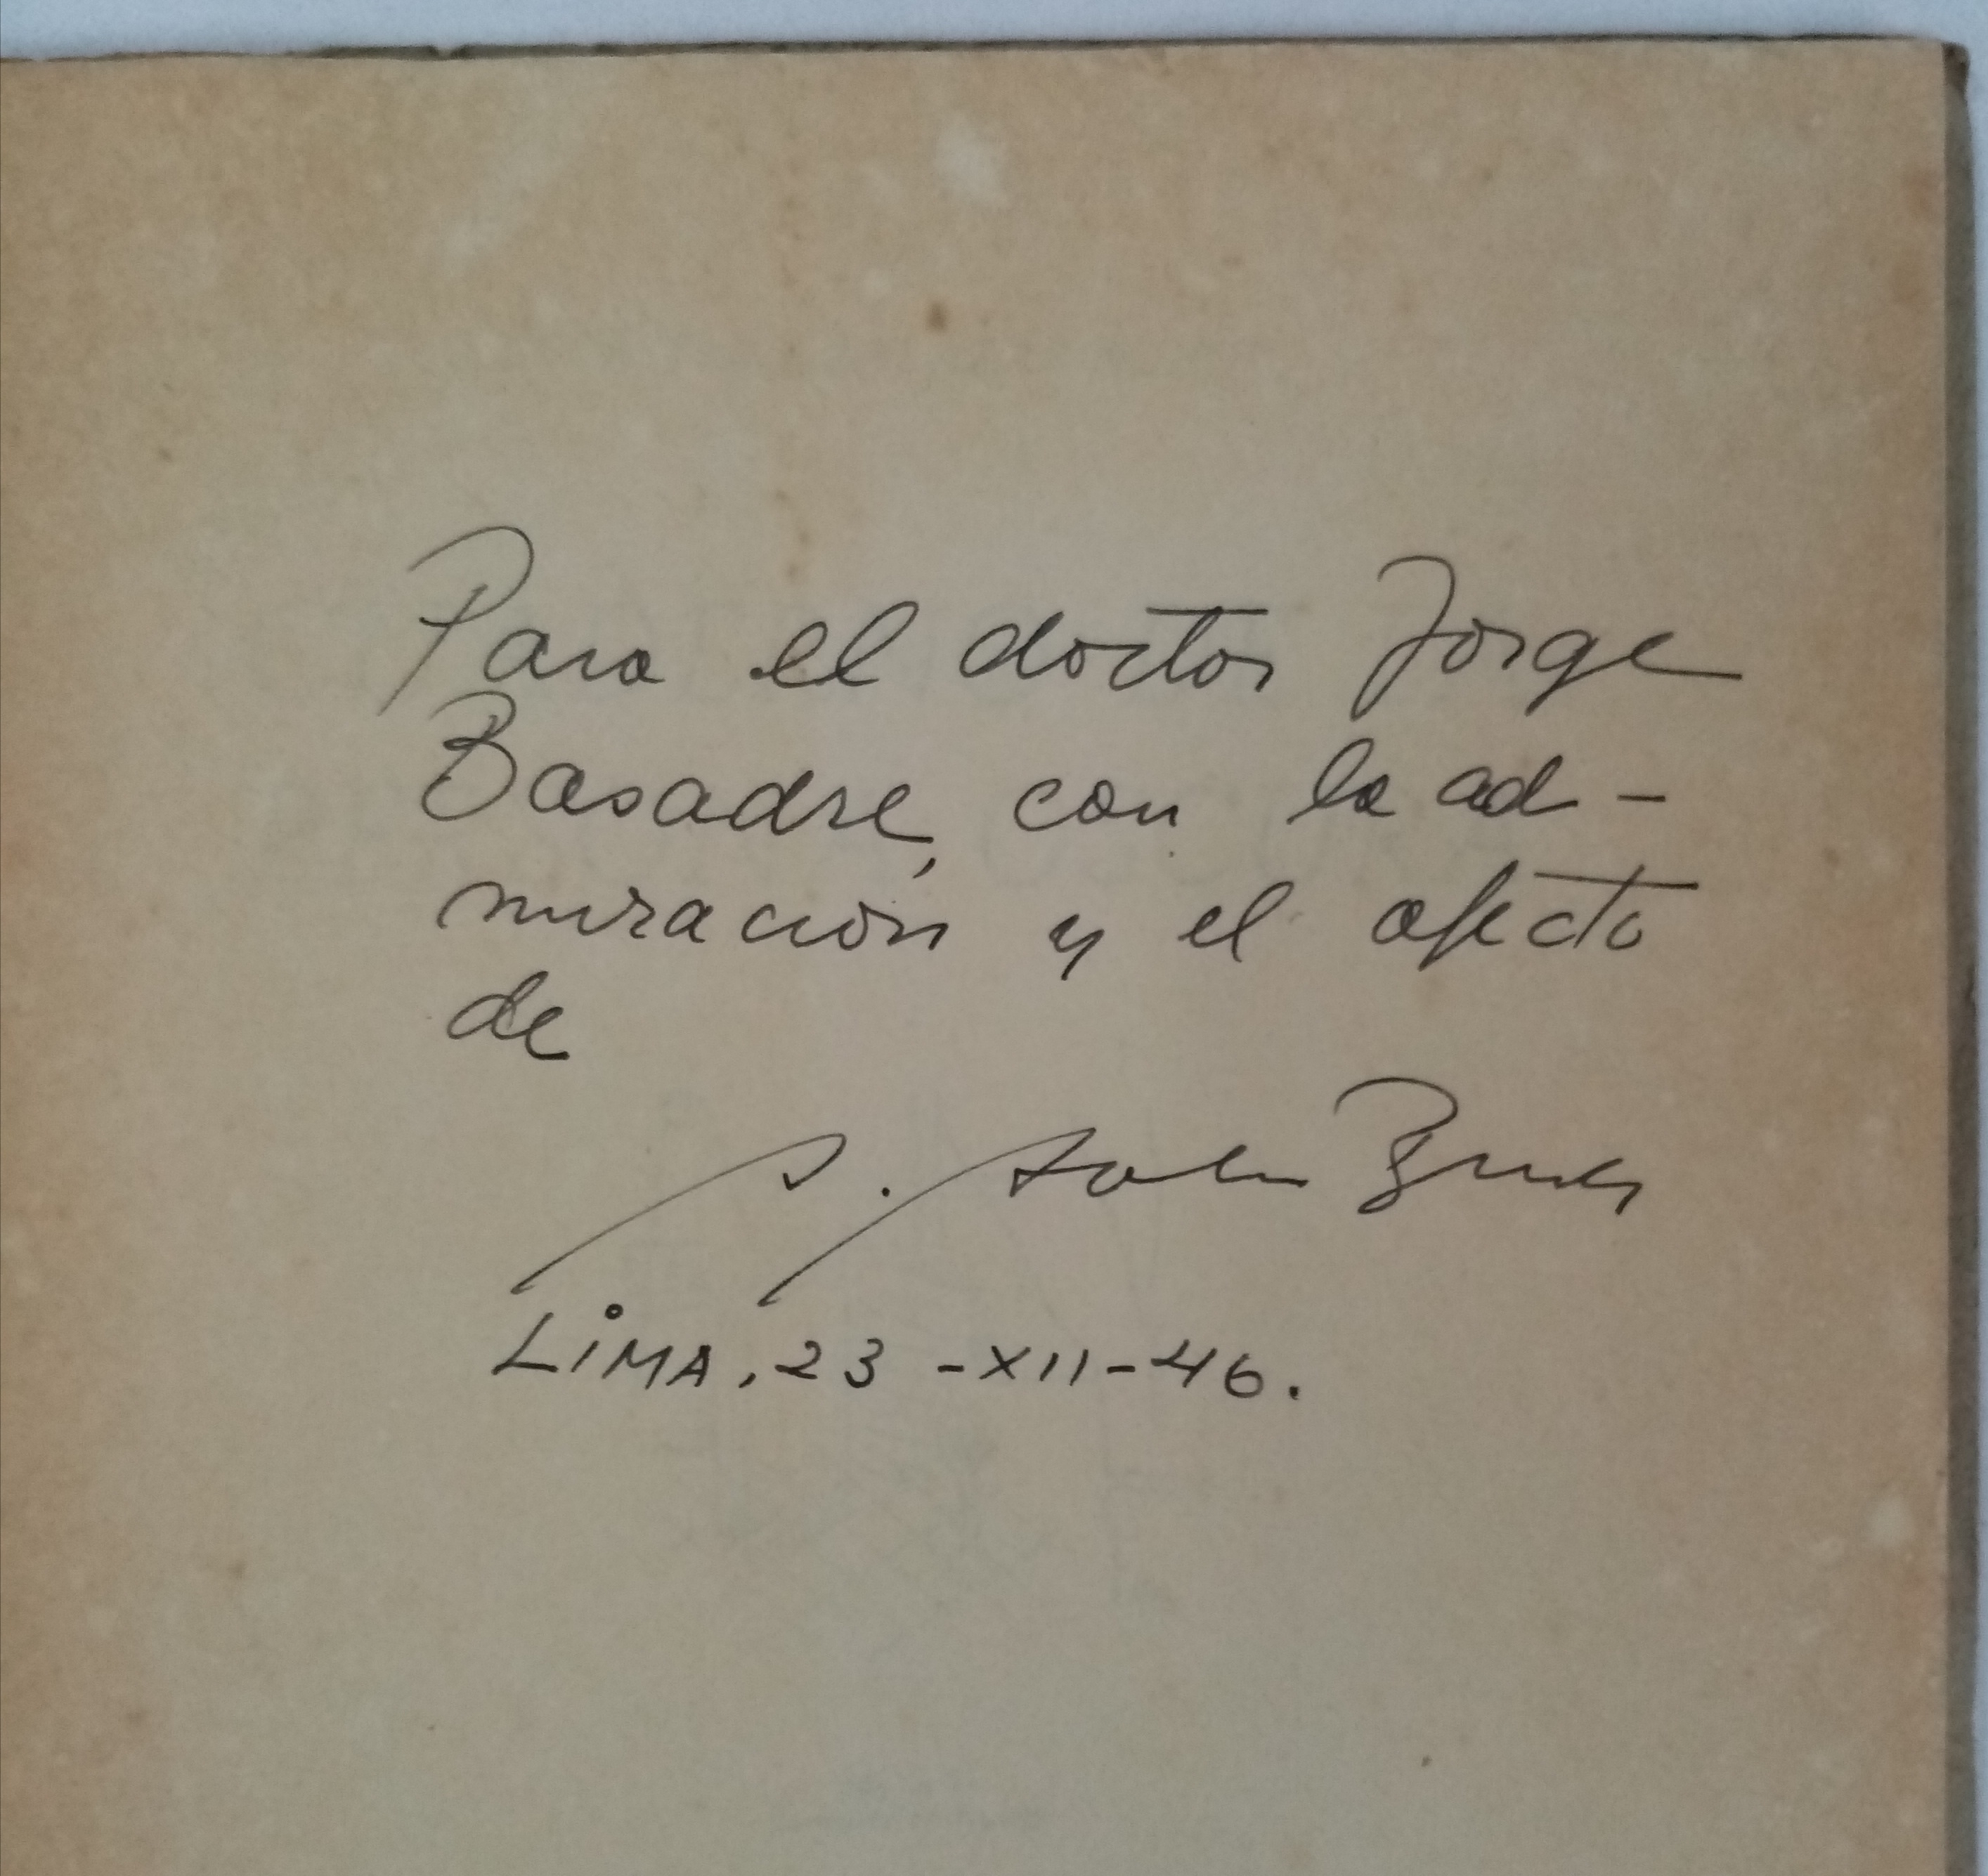 Para el doctor Jorge
Basadre, con la ad-
miración y el afecto
de
LIMA, 23 -XII-46.